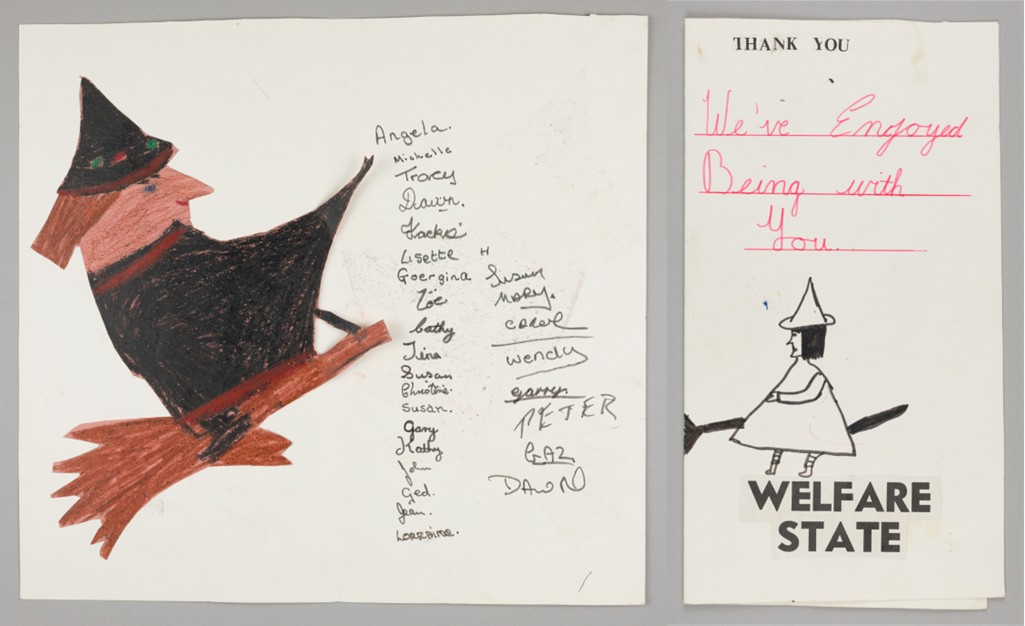 Angela.
Michelle
Tracey
Dawn.
Jackie
Lisette H
Goergina
Zöe
Cathy
Tina
Susan
Christine.
Susan.
Gary
Kathy
John
Ged.
Jean.
Lorraine.
Susan
MARY.
CAROL
Wendy
garry
PETER
GAZ
DAWN
THANK YOU
We've Enjoyed
Being with
You.
WELFARE
STATE